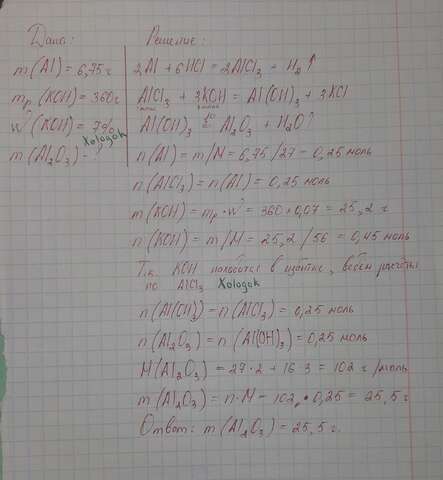 Дано:
m(Al) = 6,75 г
mр(KOH) = 360 г
w(KOH) = 7%
Xologok
m(Al₂O₃) - ?
Решение:
2Al + 6HCl = 2AlCl₃ + H₂↑
AlCl₃ + 3KOH = Al(OH)₃ + 3KCl
Al(OH)₃ = Al₂O₃ + H₂O↑
n(Al) = m/M = 6,75/27 = 0,25 моль
n(AlCl₃) = n(Al) = 0,25 моль
m(KOH) = mр · w = 360 · 0,07 = 25,2 г
n(KOH) = m/M = 25,2/56 = 0,45 моль
Т.к. KOH находится в избытке, ведём расчёты
по AlCl₃ Xologok
n(Al(OH)₃) = n(AlCl₃) = 0,25 моль
n(Al₂O₃) = n(Al(OH)₃) = 0,25 моль
M(Al₂O₃) = 27·2 + 16·3 = 102 г/моль
m(Al₂O₃) = n·M = 102 · 0,25 = 25,5 г
Ответ: m(Al₂O₃) = 25,5 г.